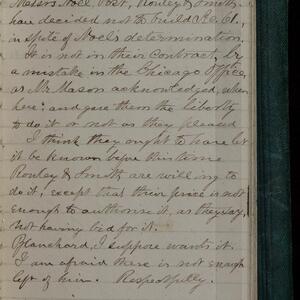 Messrs Noel, Post, Ronley & Smith,
have decided not to build Rc. 61,
in spite of Noel's determination.
It is not in their contract, by
a mistake in the Chicago Office,
as Mr Mason acknowledged, when
here; and gave them the liberty
to do it or not as they pleased
I think they ought to have let
it be known before this time
Ronley & Smith are willing to
do it, except that their price is not
enough to authorise it, as they say,
not having bid for it.
Blanchard, I suppose wants it.
I am afraid there is not enough
left of him. Respectfully.